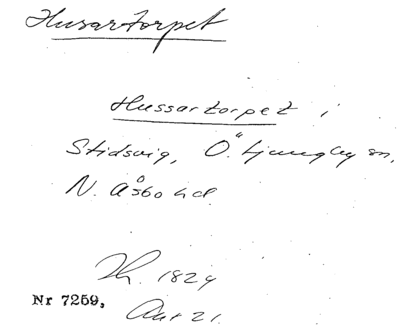 Husartorpet
Hussartorpet i
Stidsvig, Ö. Ljungby sn,
N. Åsbo hd.
1824
Nr 7259,